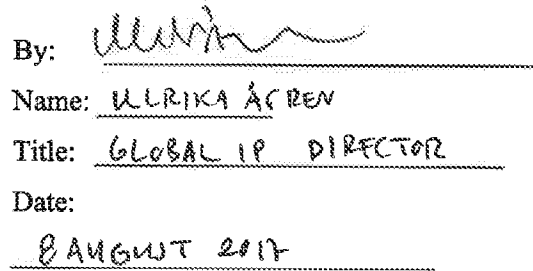 By:
Name: ULRIKA ÅGREN
Title: GLOBAL IP DIRECTOR
Date:
8 AUGUST 2017